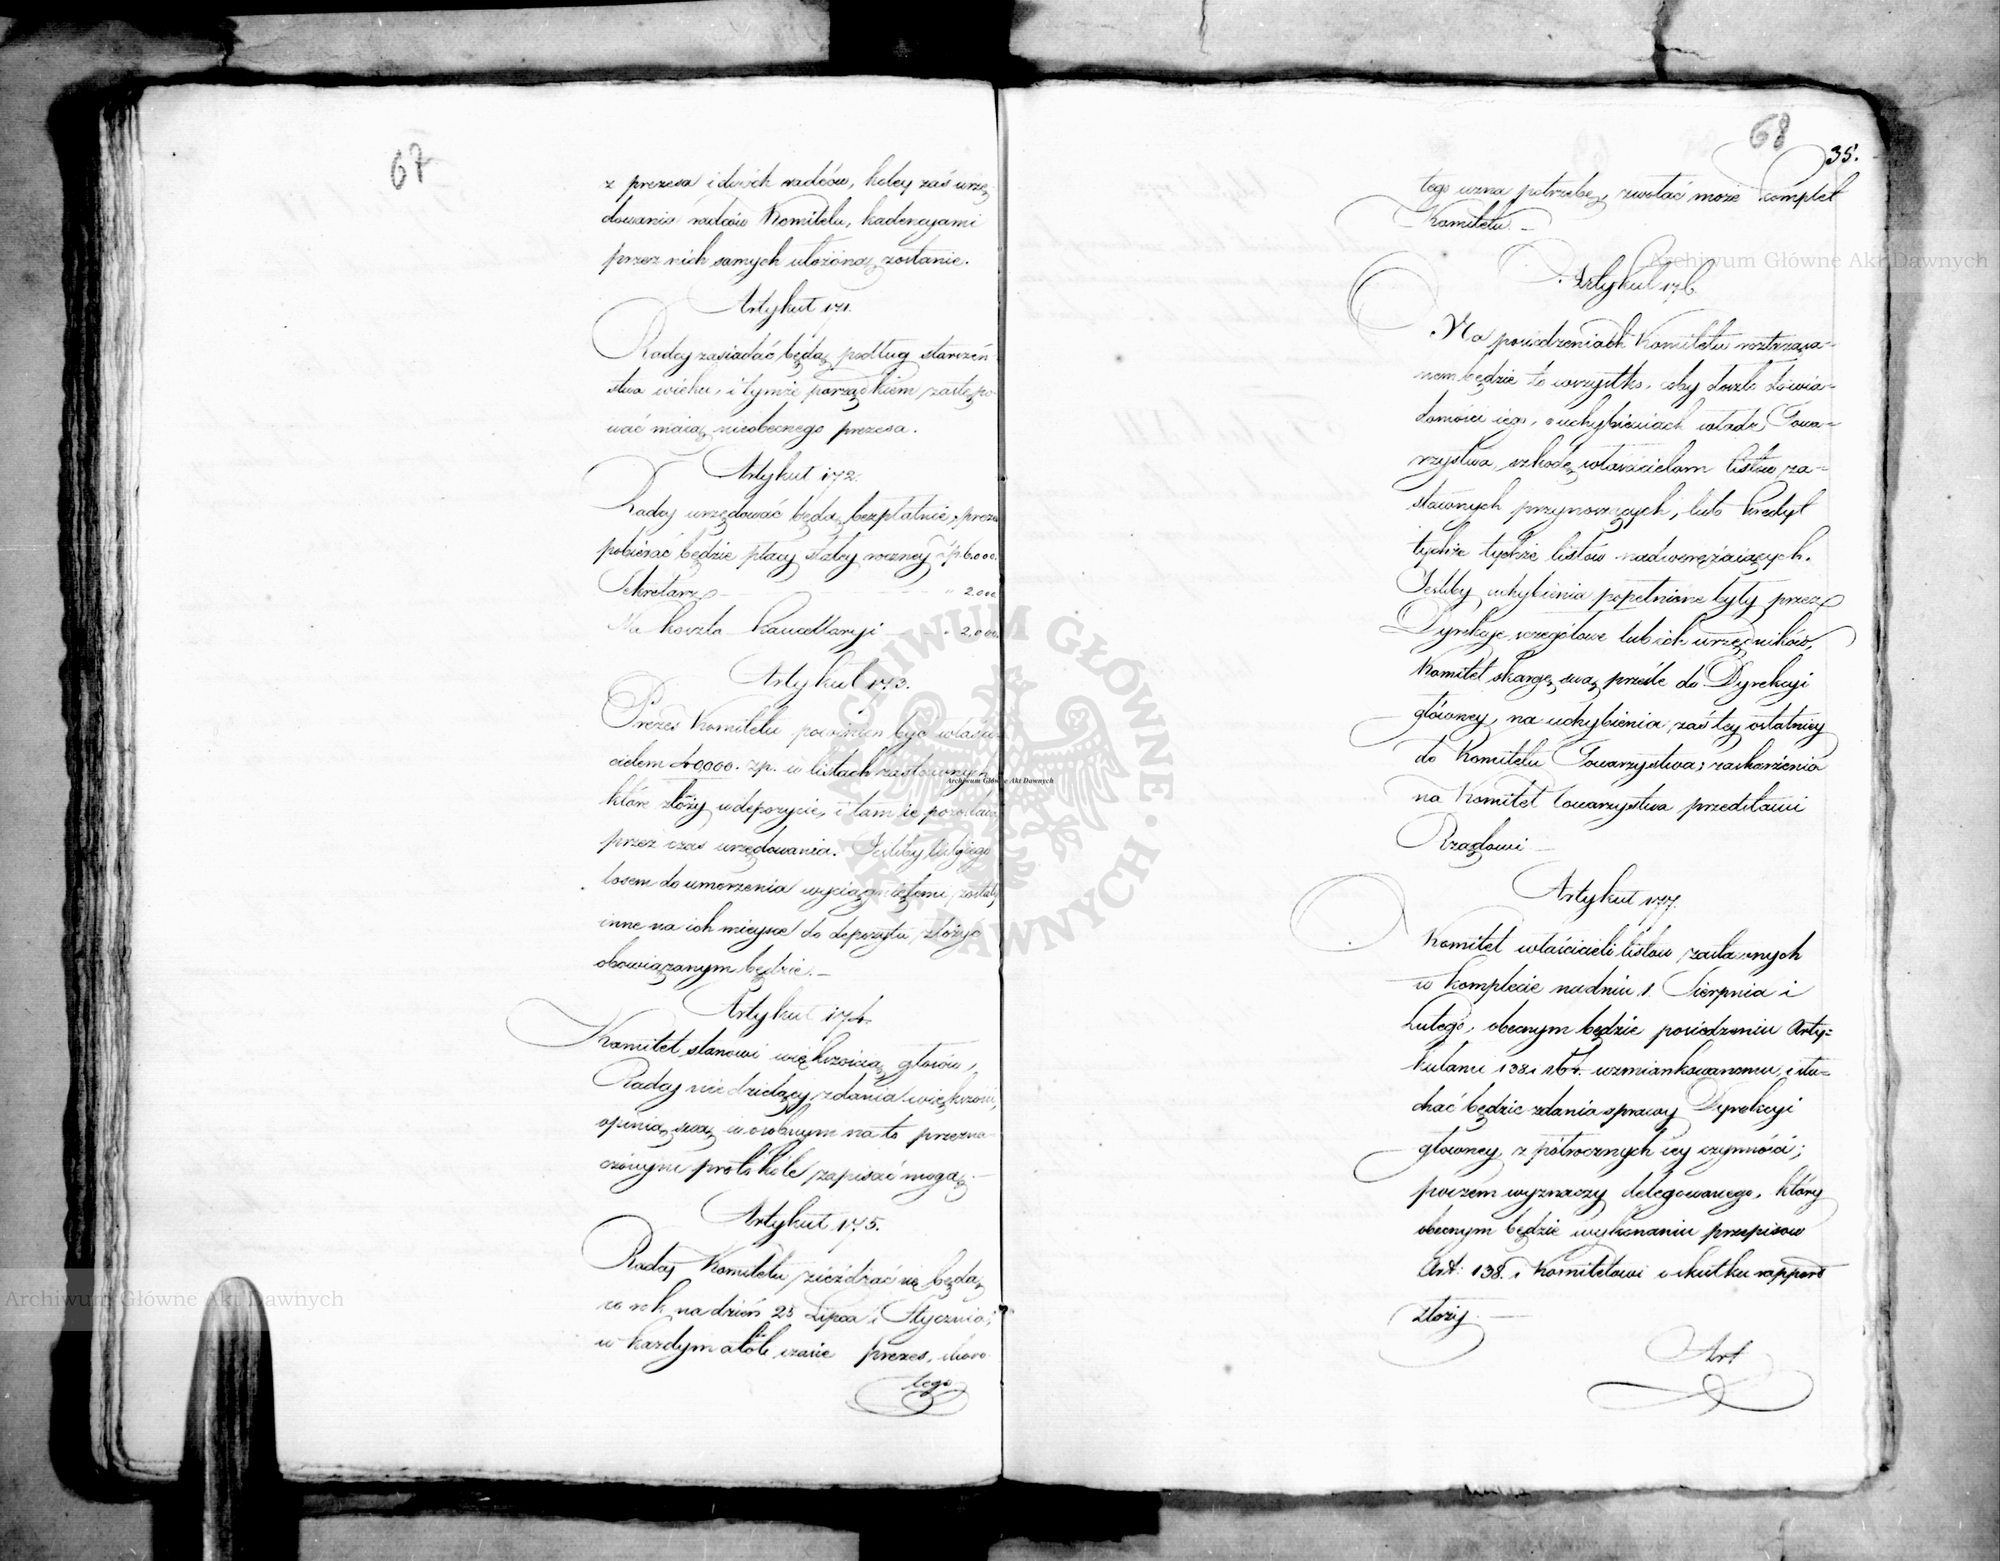 67
z prezesa i dwóch radców, koley zaś urzę-
dowania radców Komitetu, kadencyami
przez nich samych ułożoną zostanie.
Artykuł 171.
Radcy zasiadać będą podług starszeń-
stwa wieku, i tymże porządkiem zastępo-
wać maią nieobecnego prezesa.
Artykuł 172.
Radcy urzędować będą bezpłatnie, prezes
pobierać będzie płacy stałey roczney złp. 6000.
Sekretarz - " 2.000
Na koszta kancellaryi - " 2,000.
Artykuł 173.
Prezes Komitetu powinien być właści-
cielem 40000. zp. w listach zastawnych
które złoży w depozycie, i tam ie pozostawi
przez czas urzędowania. Jeśliby
losem do umorzenia wyciągniętemi zostały
inne na ich mieysce do depozytu złożyć
obowiązanym będzie. -
Artykuł 174.
Komitet stanowi większością głosów,
Radcy nie dzielący zdania większości,
opinią swą w osobnym na to przezna-
czonym protokóle zapisać mogą. -
Artykuł 175.
Radcy Komitetu zieżdżać się będą
co rok na dzień 25 Lipca i Stycznia;
w każdym atoli czasie prezes, skoro
tego
68
35.
tego uzna potrzebę, zwołać może komplet
Komitetu. -
Artykuł 176.
Na posiedzeniach Komitetu roztrząsa-
nem będzie to wszystko, coby doszło do wia-
domości iego, o uchybieniach władz Towa-
rzystwa, szkodę właścicielom listów za-
stawnych przynoszących, lub kredyt
tychże tychże listów nadwerężaiących.
Jeśliby uchybienia popełnione były przez
Dyrekcye szczegółowe lub ich urzędników,
Komitet skargę swą prześle do Dyrekcyi
główney, na uchybienia zaś tey ostatniey
do Komitetu Towarzystwa; zaskarżenia
na Komitet Towarzystwa przedstawi
Rządowi -
Artykuł 177.
Komitet właścicieli listów zastawnych
w komplecie na dniu 1. Sierpnia i
Lutego, obecnym będzie posiedzeniu Arty-
kułami 138 i 164. wzmiankowanemu, i słu-
chać będzie zdania sprawy Dyrekcyi
główney, z półrocznych iey czynności;
poczém wyznaczy delegowanego, który
obecnym będzie wykonaniu przepisów
Art: 138. i Komitetowi o skutku rapport
złoży. -
Art
Archiwum Główne Akt Dawnych
Archiwum Główne Akt Dawnych
Archiwum Główne Akt Dawnych
ARCHIWUM GŁÓWNE AKT DAWNYCH